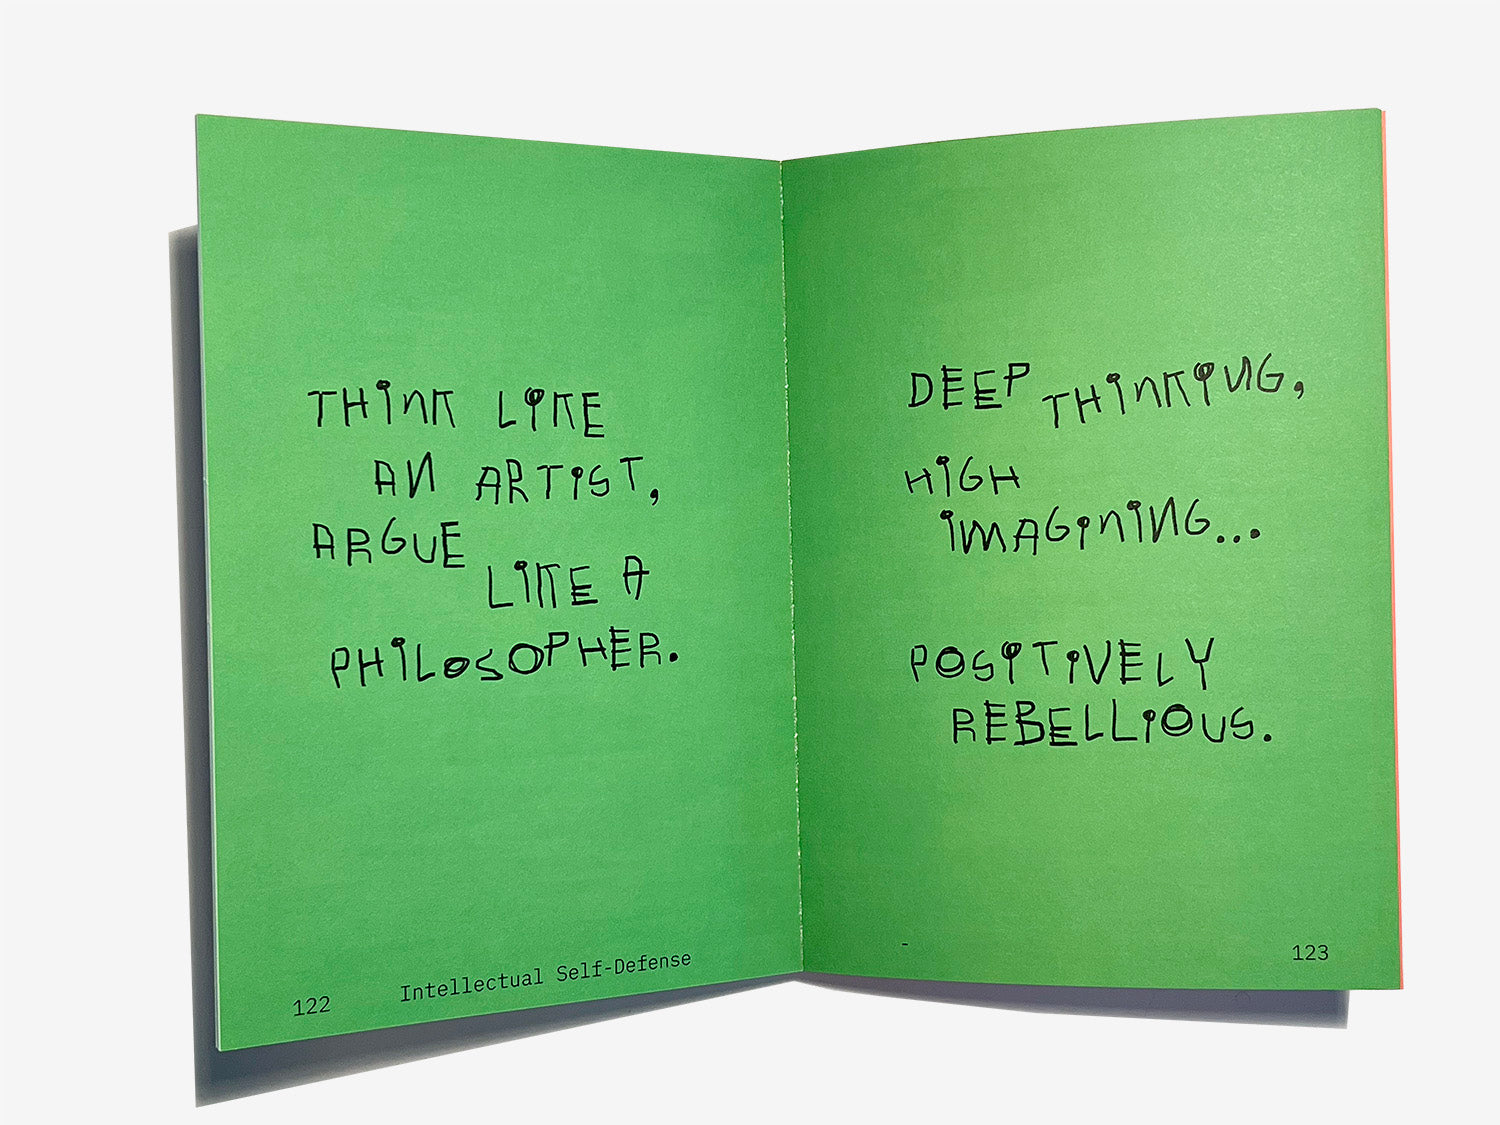 THINK LIKE
AN ARTIST,
ARGUE
LIKE A
PHILOSOPHER.
122
Intellectual Self-Defense
DEEP THINKING,
HIGH
IMAGINING...
POSITIVELY
REBELLIOUS.
-
123